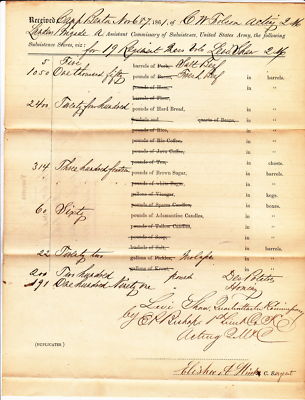 Received Camp Bates Nov 6th 1861, of C W Folsom Acting Q M
Landers Brigade A Assistant Commissary of Subsistence, United States Army, the following
Subsistence Stores, viz:
for 19 Regiment Mass Vols Levi Shaw Q M
5 Five barrels of Pork, Salt Beef in barrels.
1050 One thousand fifty barrels of Fresh Beef
pounds of Ham,
pounds of Flour,
2400 Twenty four hundred pounds of Hard Bread, in barrels.
bushels and quarts of Beans,
pounds of Rice,
pounds of Rio Coffee,
pounds of Java Coffee,
pounds of Tea, in chests.
314 Three hundred fourteen pounds of Brown Sugar, in barrels.
pounds of White Sugar,
gallons of Vinegar, in kegs.
pounds of Sperm Candles, in boxes.
60 Sixty pounds of Adamantine Candles,
pounds of Tallow Candles,
pounds of Soap,
bushels of Salt, in barrels.
22 Twenty two gallons of Molases in
200 Two Hundred pound Des Potatoes
191 One hundred Ninety one Hominy
Levi Shaw, Quartermaster &
by
Acting Q M
(DUPLICATES)
Elisha A C. Sergeant